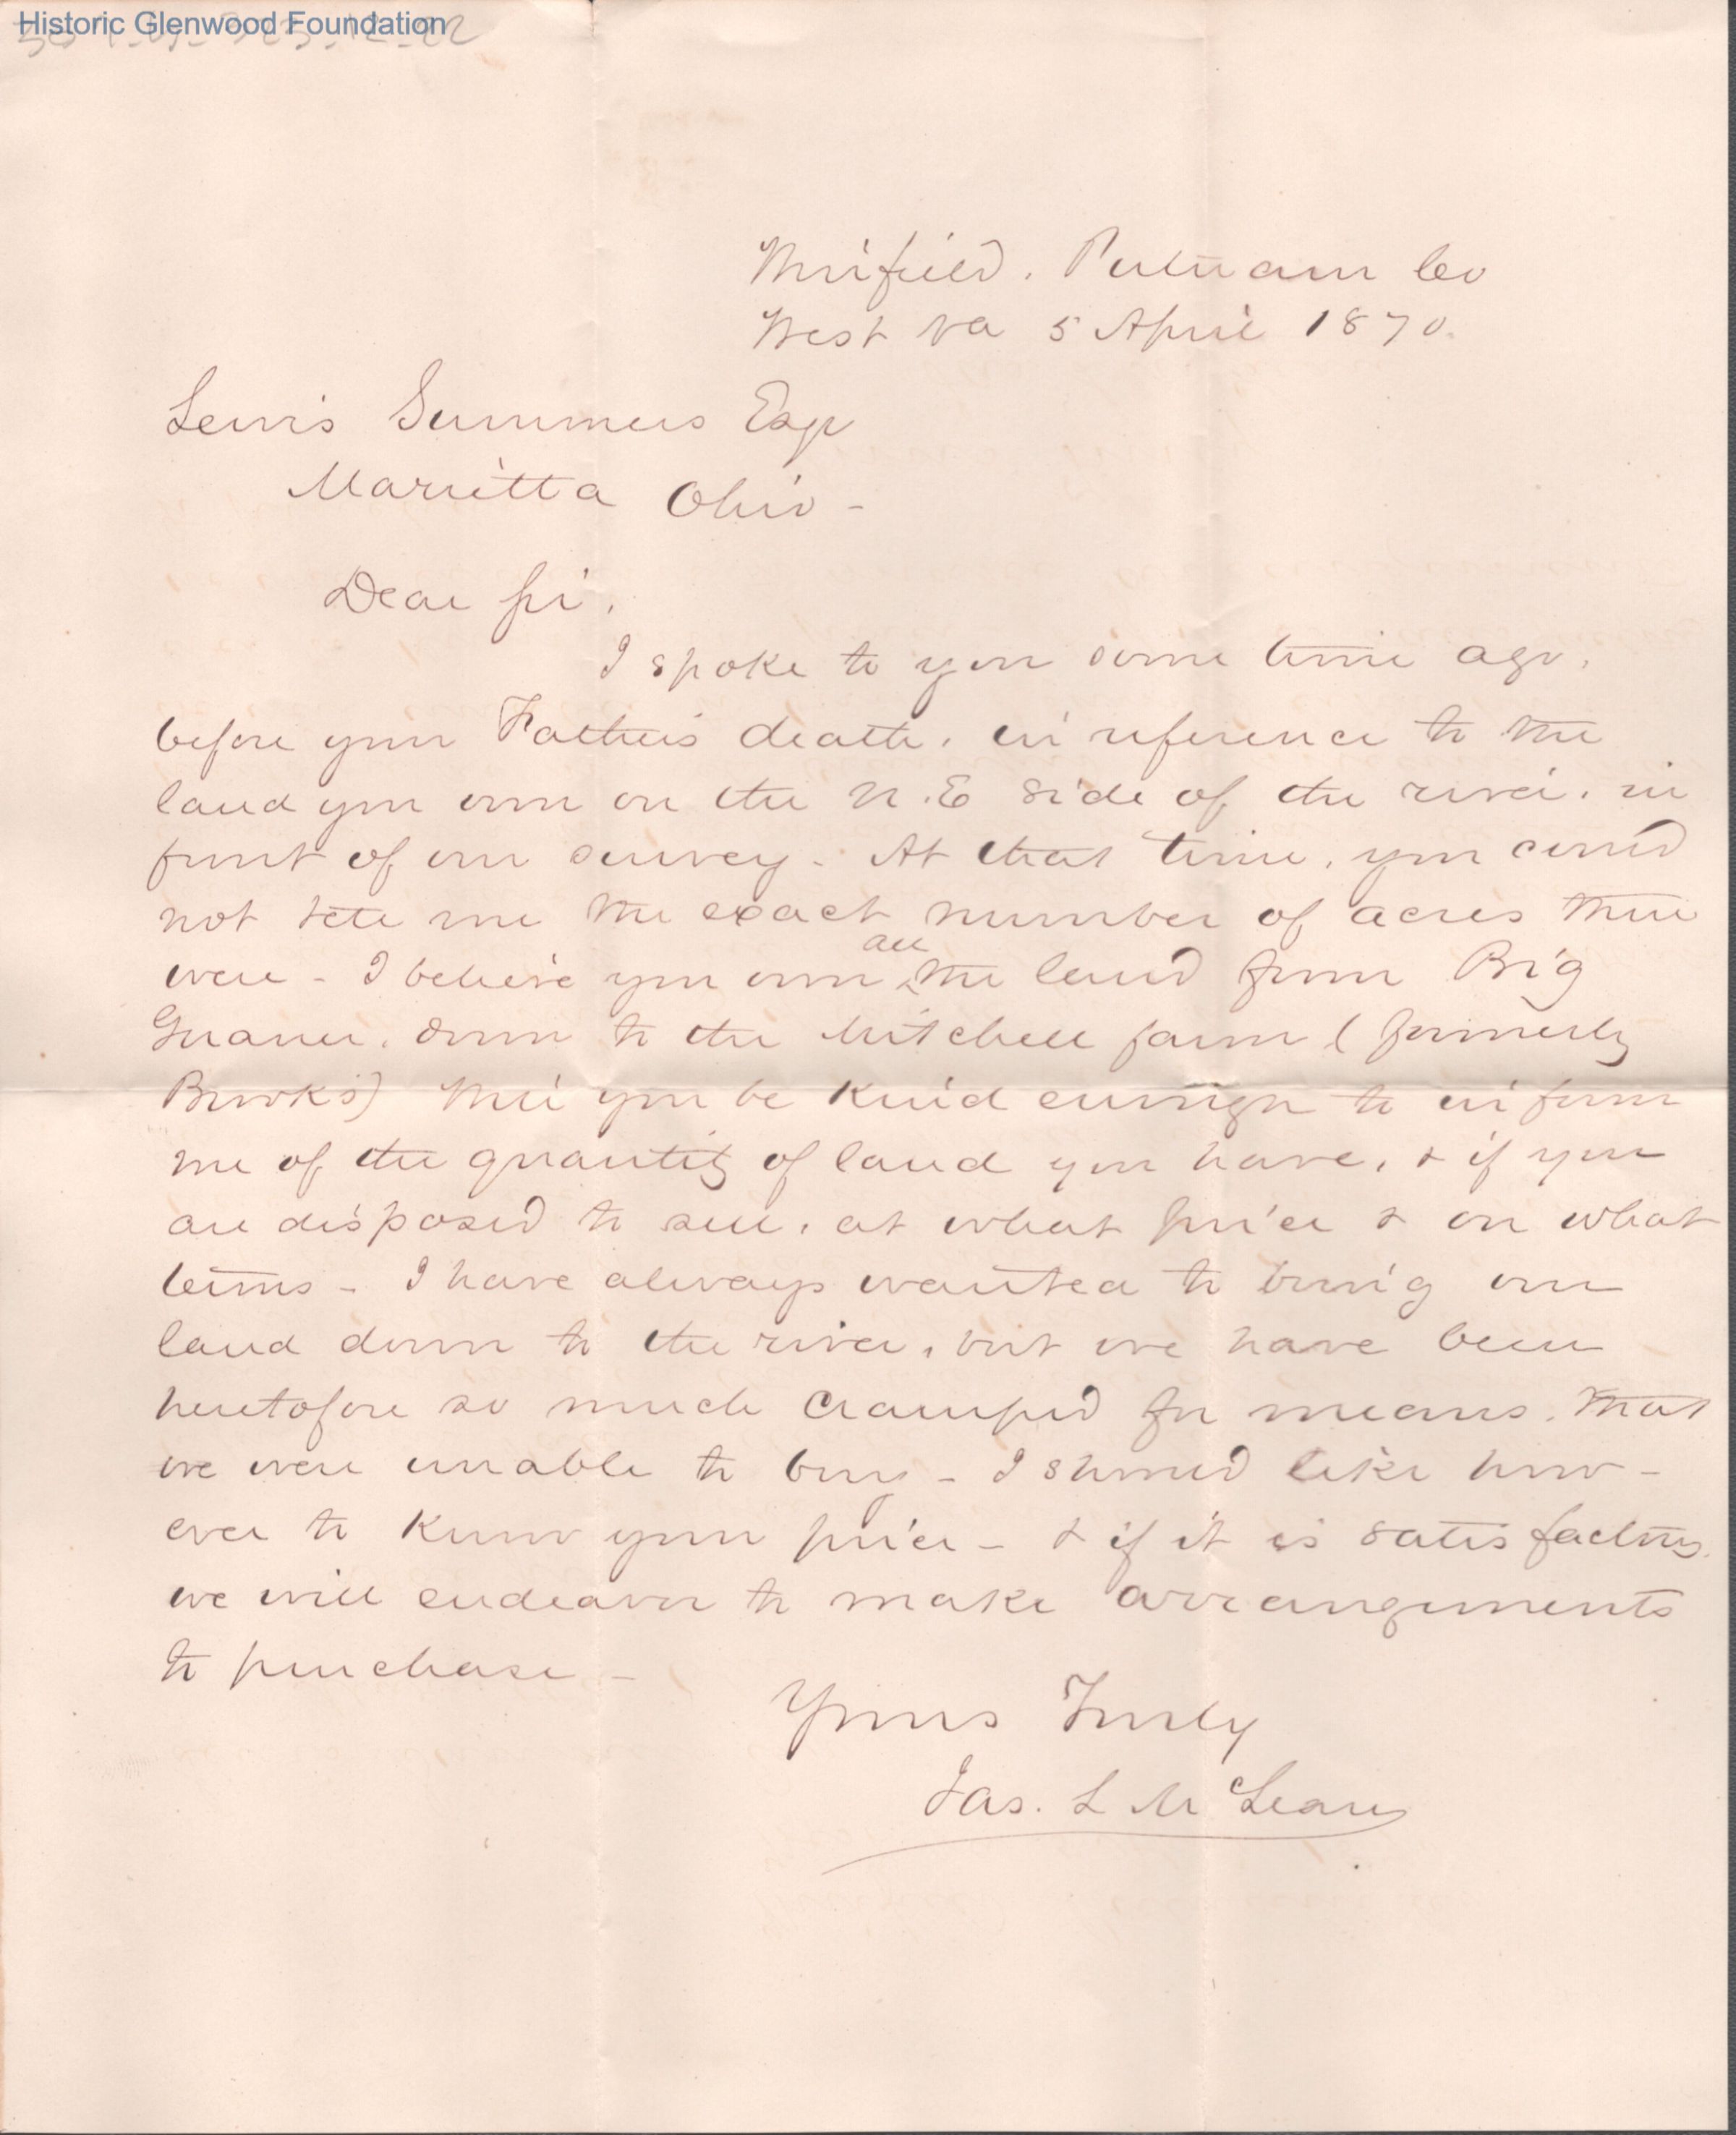 Historic Glenwood Foundation
Winfield. Putnam Co
West Va 5 April 1870.
Lewis Summers Esqr
Marritta Ohio -
Dear Sir,
I spoke to you some time ago,
before your Father's death, in reference to the
land you own on the N.E side of the river, in
front of our survey - At that time, you could
not tell me the exact number of acres there
were - I believe you own all the land from Big
down to the Mitchell farm (formerly
Brooks) Will you be kind enough to inform
me of the quantity of land you have, & if you
are disposed to sell, at what price & on what
terms - I have always wanted to bring our
land down to the river, but we have been
heretofore so much cramped for means, that
we were unable to buy - I should like how-
ever to know your price - & if it is satisfactory
we will endeavor to make arrangements
to purchase -
Yours Truly
Jas. L McLean